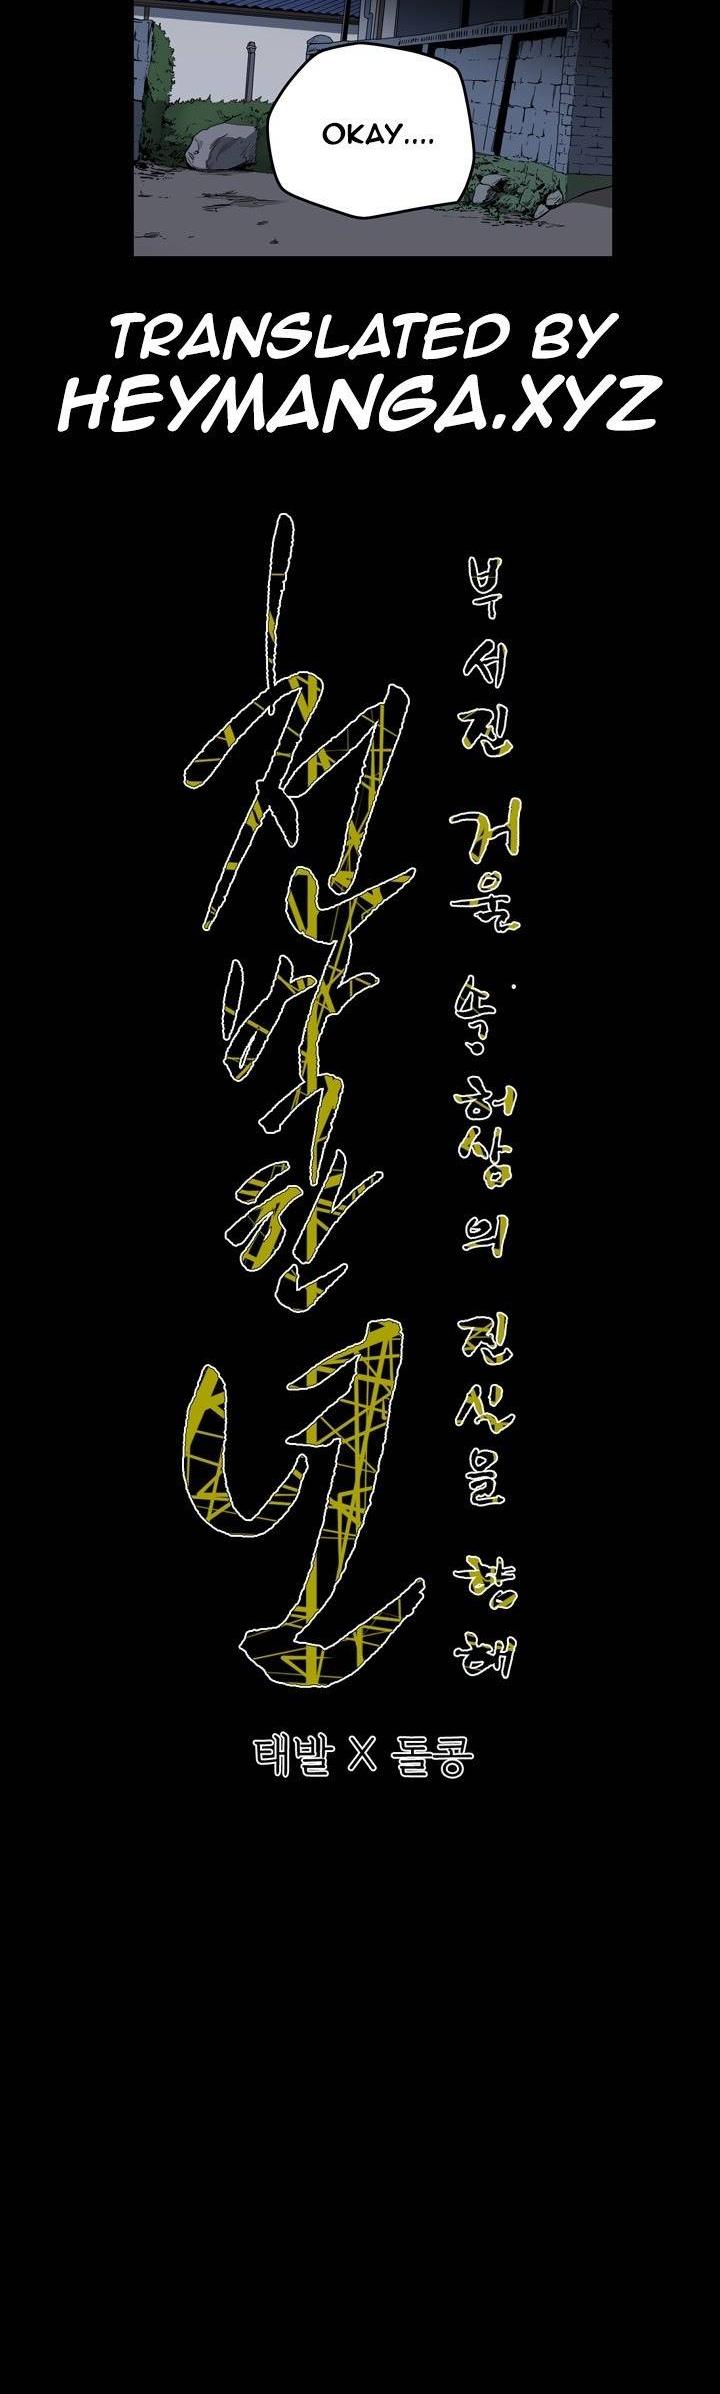 OKAY....
TRANSLATED BY
HEYMANGA.XYZ
부서진 거울 속 허상의 진실을 향해
천박한년
태발 X 돌콩